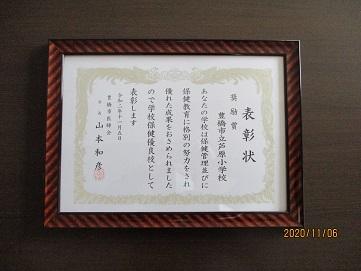 表彰状
奨励賞
豊橋市立芦原小学校
あなたの学校は保健管理並びに
保健教育に格別の努力をされ
優れた成果をおさめられました
ので学校保健優良校として
表彰します
令和二年十一月五日
豊橋市医師会
会長 山本和彦
2020/11/06